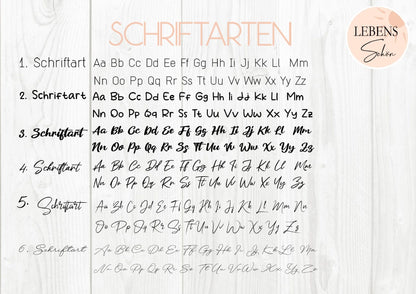 SCHRIFTARTEN
LEBENS
Schön
1. Schriftart Aa Bb Cc Dd Ee Ff Gg Hh Ii Jj Kk Ll Mm
Nn Oo Pp Qq Rr Ss Tt Uu Vv Ww Xx Yy Zz
2. Schriftart Aa Bb Cc Dd Ee Ff Gg Hh Ii Jj Kk Ll Mm
Nn Oo Pp Qq Rr Ss Tt Uu Vv Ww Xx Yy Zz
3. Schriftart Aa Bb Cc Dd Ee Ff Gg Hh Ii Jj Kk Ll Mm
Nn Oo Pp Qq Rr Ss Tt Uu Vv Ww Xx Yy Zz
4. Schriftart Aa Bb Cc Dd Ee Ff Gg Hh Ii Jj Kk Ll Mm
Nn Oo Pp Qq Rr Ss Tt Uu Vv Ww Xx Yy Zz
5. Schriftart Aa Bb Cc Dd Ee Ff Gg Hh Ii Jj Kk Ll Mm Nn
Oo Pp Qq Rr Ss Tt Uu Vv Ww Xx Yy Zz
6. Schriftart Aa Bb Cc Dd Ee Ff Gg Hh Ii Jj Kk Ll Mm
Nn Oo Pp Qq Rr Ss Tt Uu Vv Ww Xx Yy Zz